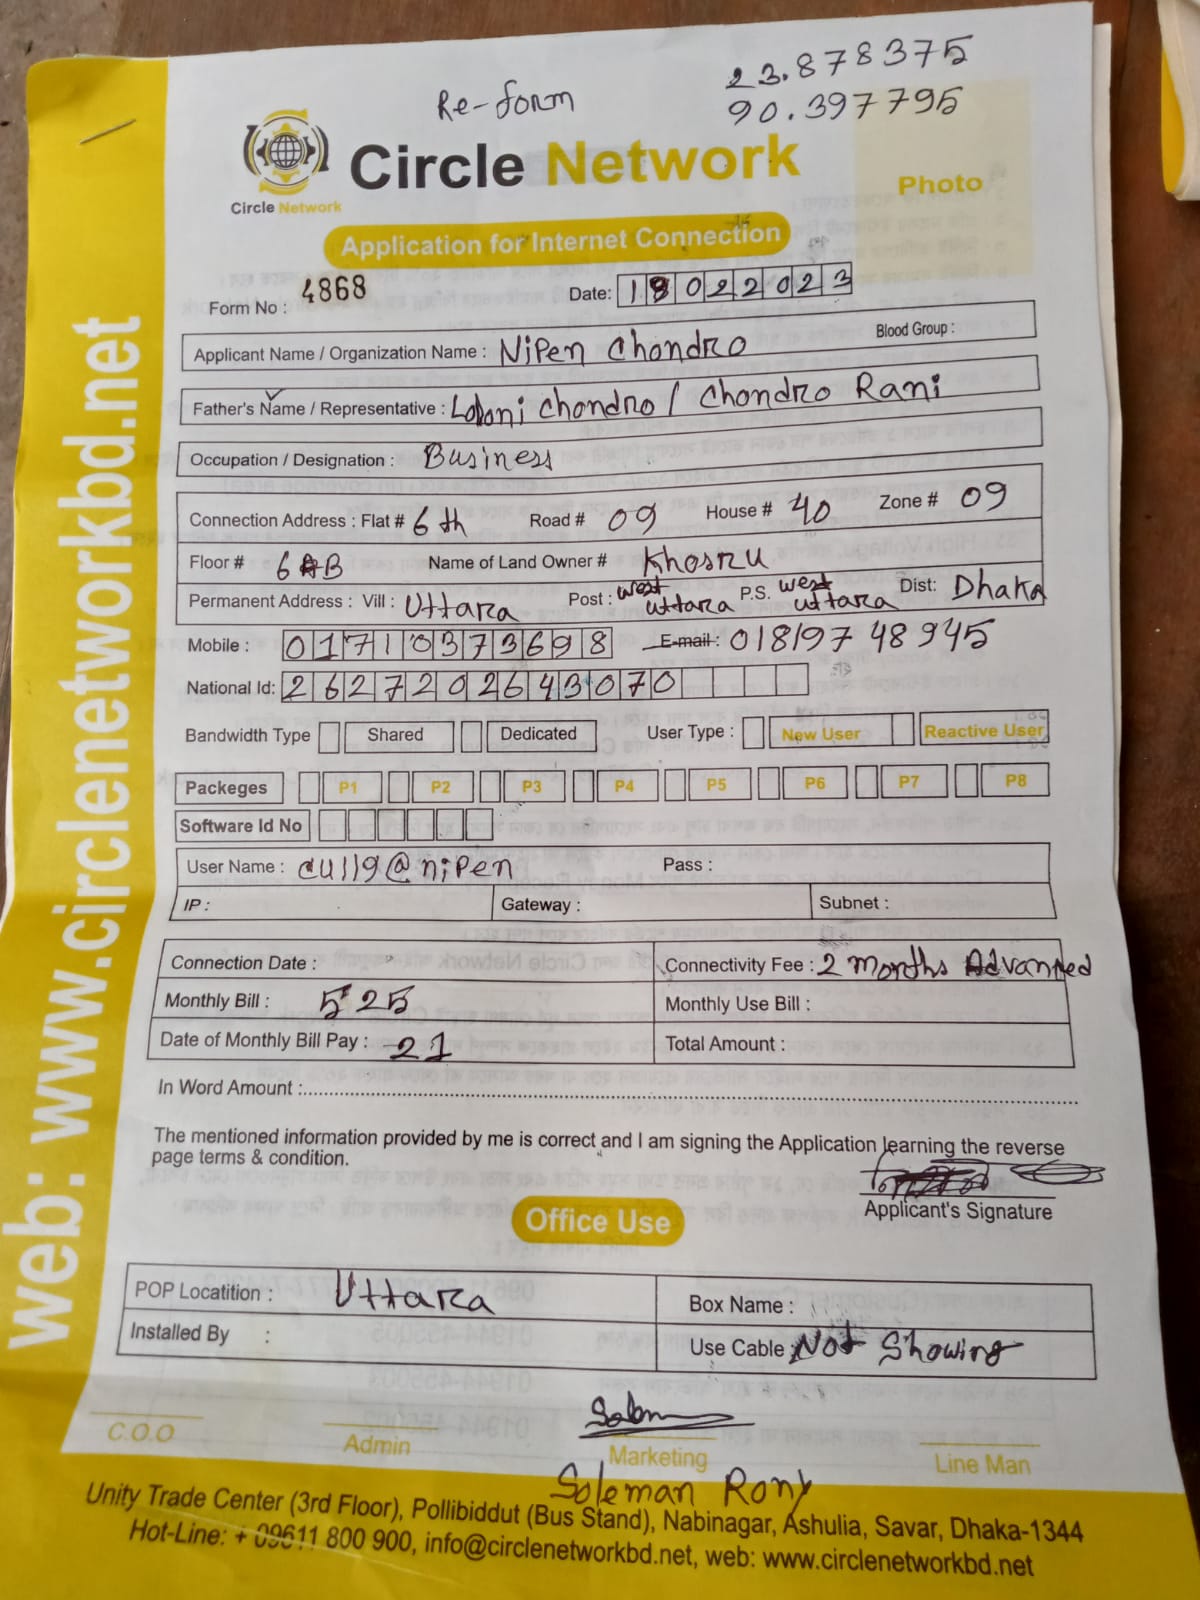 Re-form
23.878375
90.397795
Circle Network
Circle Network
Photo
Application for Internet Connection
Form No : 4868
Date: 18022023
Applicant Name / Organization Name : Nipen Chondro Blood Group :
Father's Name / Representative : Loboni Chondro / Chondro Rani
Occupation / Designation : Business
Connection Address : Flat # 6th Road # 09 House # 40 Zone # 09
Floor # 6 B Name of Land Owner # Khosru
Permanent Address : Vill : Uttara Post : west uttara P.S. west uttara Dist: Dhaka
Mobile : 01710373698 E-mail : 01819748945
National Id: 2627202643070
Bandwidth Type Shared Dedicated User Type : New User Reactive User
Packeges P1 P2 P3 P4 P5 P6 P7 P8
Software Id No
User Name : cu119@nipen Pass :
IP : Gateway : Subnet :
Connection Date : Connectivity Fee : 2 months Advanced
Monthly Bill : 525 Monthly Use Bill :
Date of Monthly Bill Pay : 21 Total Amount :
In Word Amount :
The mentioned information provided by me is correct and I am signing the Application learning the reverse
page terms & condition.
Applicant's Signature
Office Use
POP Locatition : Uttara Box Name :
Installed By : Use Cable : Not Showing
C.O.O Admin Marketing Line Man
Soleman Rony
Unity Trade Center (3rd Floor), Pollibiddut (Bus Stand), Nabinagar, Ashulia, Savar, Dhaka-1344
Hot-Line: + 09611 800 900, info@circlenetworkbd.net, web: www.circlenetworkbd.net
web: www.circlenetworkbd.net